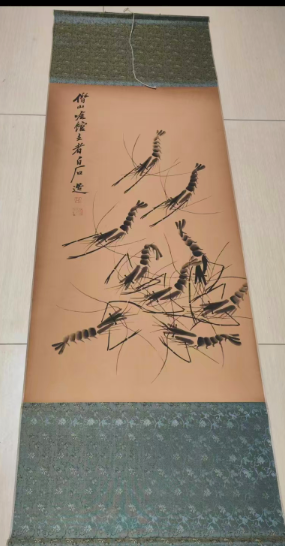 借山唫館主者白石造